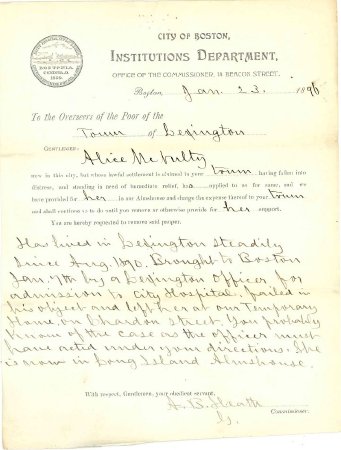 CITY OF BOSTON,
INSTITUTIONS DEPARTMENT,
OFFICE OF THE COMMISSIONER, 14 BEACON STREET.
BOSTONIA
CONDITA A.D.
1630.
Boston, Jan. 23. 1896
To the Overseers of the Poor of the
Town of Lexington
GENTLEMEN:
Alice McNulty
now in this city, but whose lawful settlement is claimed in your town, having fallen into
distress, and standing in need of immediate relief, has applied to us for same, and we
have provided for her in our Almshouse and charge the expense thereof to your town
and shall continue so to do until you remove or otherwise provide for her support.
You are hereby requested to remove said pauper.
Has lived in Lexington steadily
since Aug. 1890. Brought to Boston
Jan. 7th by a Lexington Officer for
admission to City Hospital, failed in
his object and left her at our Temporary
Home, on Chardon Street. You probably
know of the case as the officer must
have acted under your directions. She
is now in Long Island Almshouse.
With respect, Gentlemen, your obedient servant,
A. B. Heath
Commissioner.